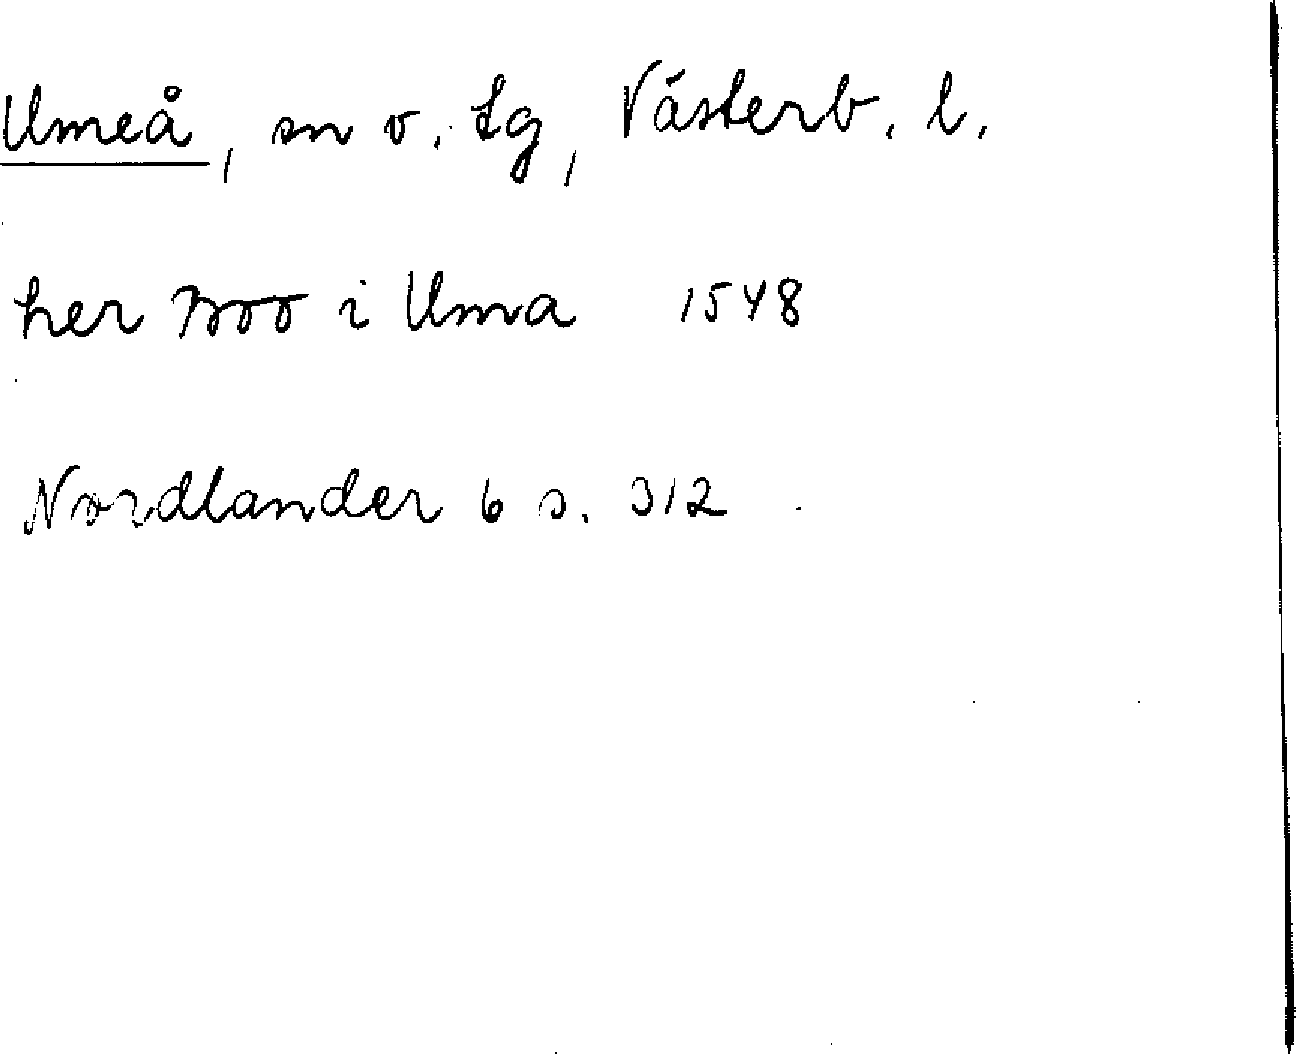 Umeå, sn o. tg, Västerb. l.
her i Uma 1548
Nordlander 6 s. 312